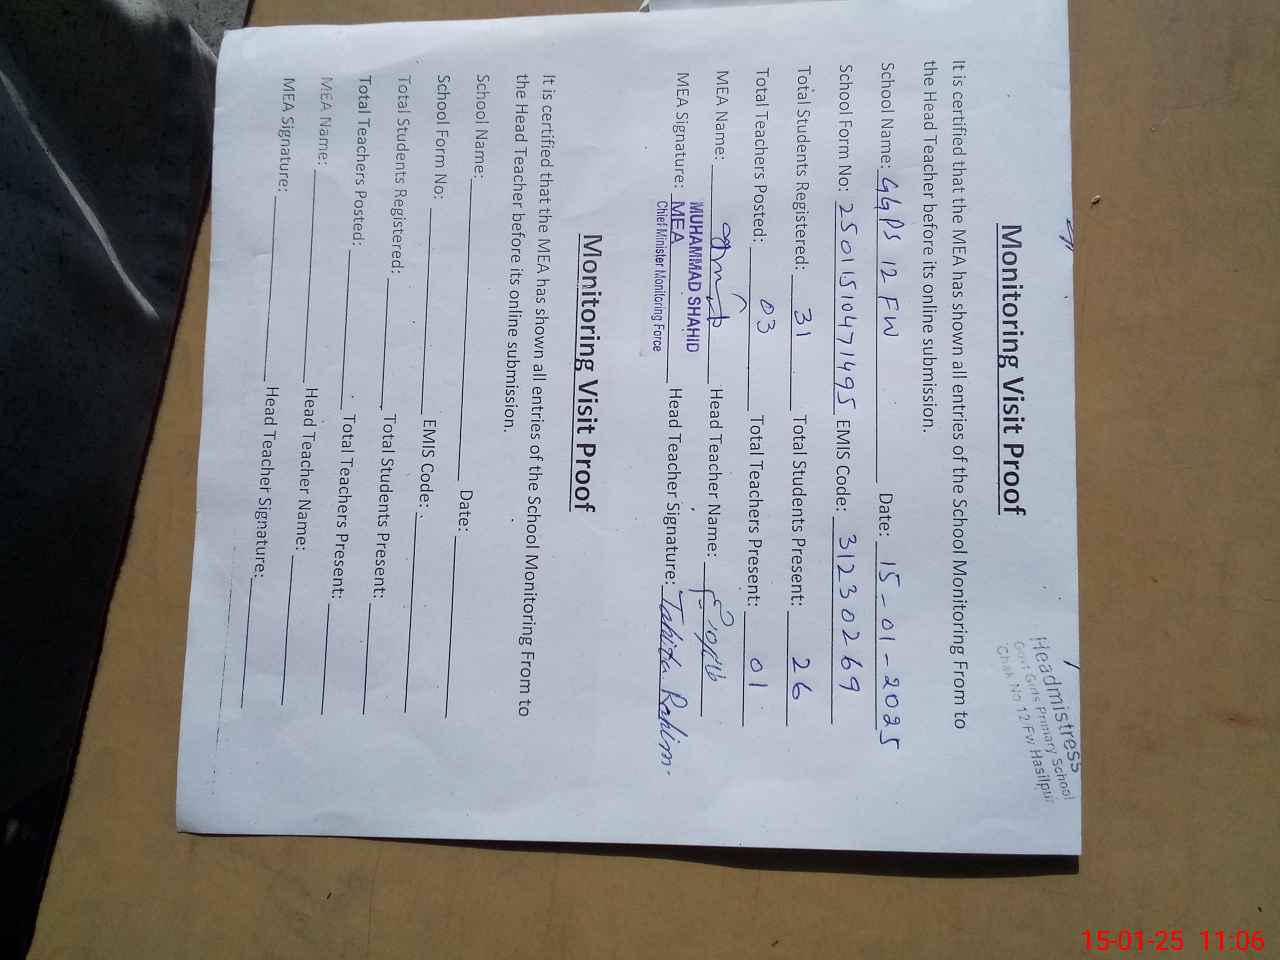 Headmistress
Govt Girls Primary School
Chak No 12/FW Hasilpur
Monitoring Visit Proof
It is certified that the MEA has shown all entries of the School Monitoring From to
the Head Teacher before its online submission.
School Name: GGPS 12 FW Date: 15-01-2025
School Form No: 2501151047 1495 EMIS Code: 31230269
Total Students Registered: 31 Total Students Present: 26
Total Teachers Posted: 03 Total Teachers Present: 01
MEA Name: Head Teacher Name:
MUHAMMAD SHAHID
MEA Signature: MEA Head Teacher Signature: Tahira Rahim.
Chief Minister Monitoring Force
Monitoring Visit Proof
It is certified that the MEA has shown all entries of the School Monitoring From to
the Head Teacher before its online submission.
School Name: Date:
School Form No: EMIS Code:
Total Students Registered: Total Students Present:
Total Teachers Posted: Total Teachers Present:
MEA Name: Head Teacher Name:
MEA Signature: Head Teacher Signature:
15-01-25 11:06